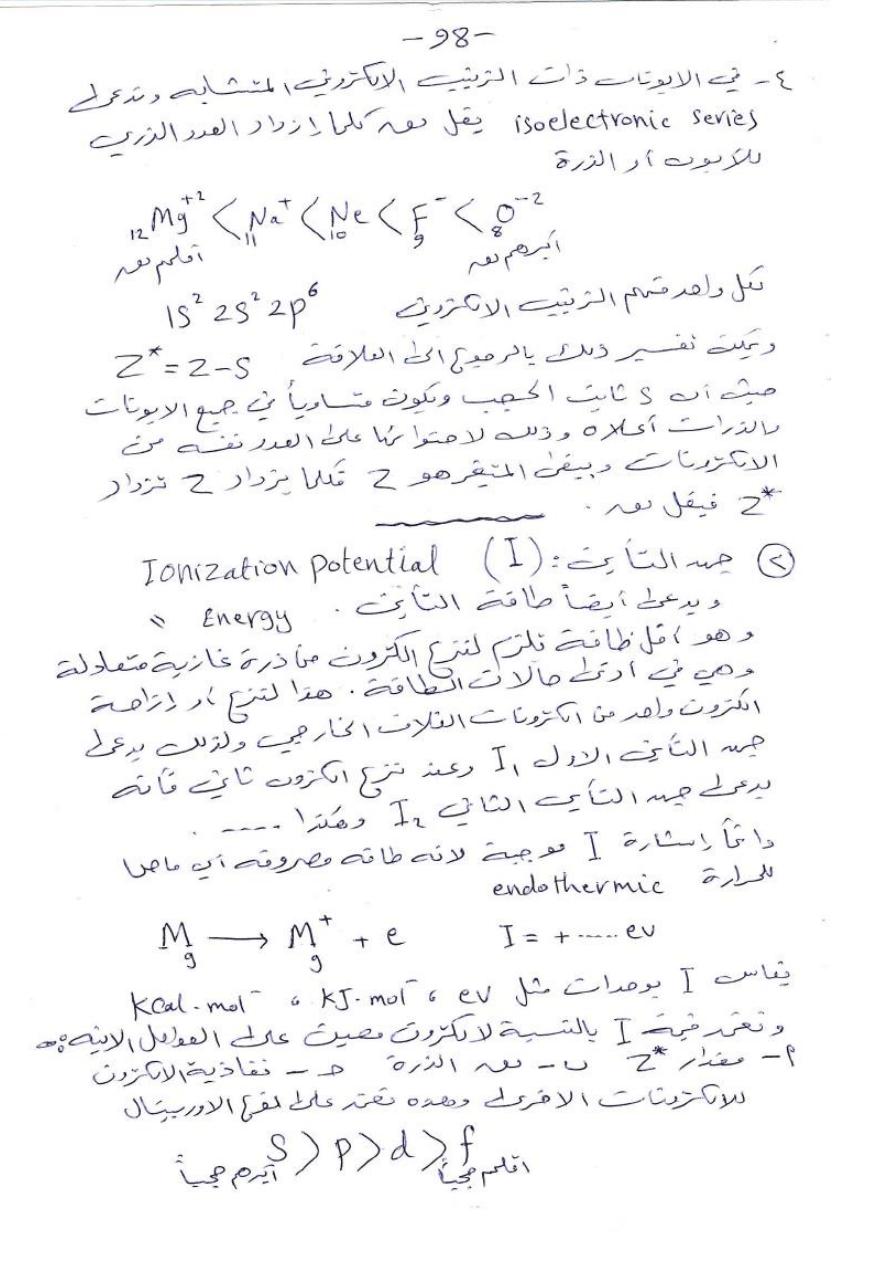 -98-
٤- في الايونات ذات الترتيب الالكتروني المتشابه وتدعى
isoelectronic series يقل نصـ كلما إزداد العدد الذري
للأيون أو الذرة
₁₂Mg⁺² < ₁₁Na⁺ < ₁₀Ne < ₉F⁻ < ₈O⁻²
أكبرهم نصـ أقلهم نصـ
لكل واحد منهم الترتيب الالكتروني 1S² 2S² 2p⁶
ويمكن تفسير ذلك بالرجوع الى العلاقة Z* = Z-S
حيث أن S ثابت الحجب ويكون متساوياً في جميع الايونات
والذرات أعلاه وذلك لاحتوائها على العدد نفسه من
الالكترونات ويبقى المتغير هو Z فكلما يزداد Z تزداد
Z* فيقل نصـ .
② جهد التأين : (I) Ionization potential
ويدعى أيضاً طاقة التأين . Energy "
وهو أقل طاقة تلزم لنزع الكترون من ذرة غازية متعادلة
وهي في أدنى حالات الطاقة . هذا لنزع أو إزاحة
الكترون واحد من الكترونات الغلاف الخارجي ولذلك يدعى
جهد التأين الاول I₁ وعند نزع الكترون ثاني فأنه
يدعى جهد التأين الثاني I₂ وهكذا ----- .
دائماً إشارة I موجبة لانه طاقه مصروفه أي ماصا
للحرارة endothermic
Mg ⟶ M⁺g + e I = + ...... ev
يقاس I بوحدات مثل ev ، kJ.mol⁻ ، KCal.mol⁻
وتعتمد قيمة I بالنسبة لالكترون معين على العوامل الاتيه :-
٩- مقدار Z* ب- نصـ الذرة حـ- نفاذية الالكترون
للالكترونات الاخرى وهذه تعتمد على نوع الاوربيتال
S > p > d > f
أكبرهم حجباً اقلهم حجباً